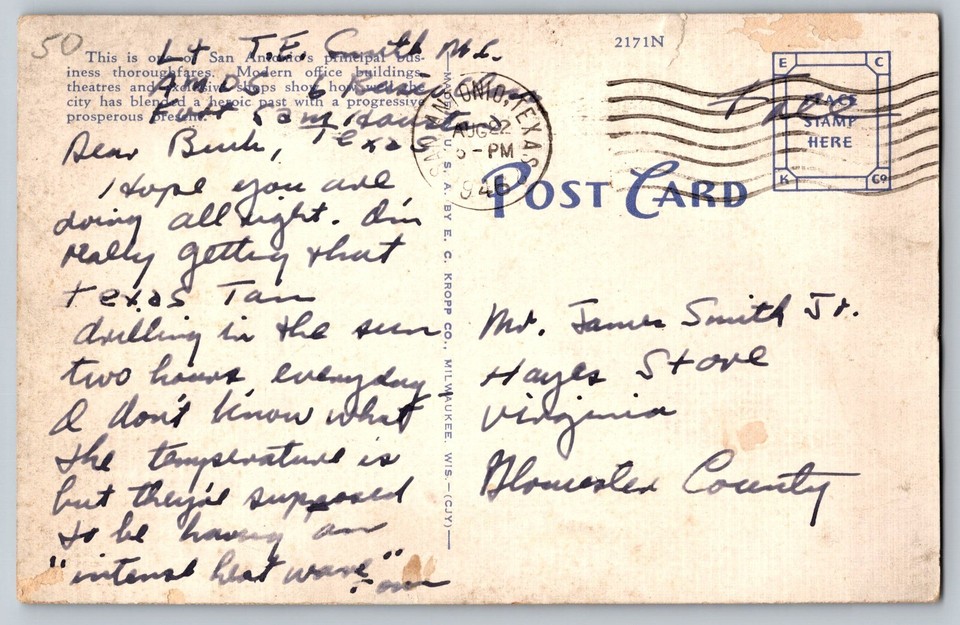 50
2171N
Lt T.E. Smith M.C.
This is one of San Antonio's principal bus-
iness thoroughfares. Modern office buildings,
theatres and exclusive shops show how the
city has blended a heroic past with a progressive
prosperous present.
AMDS 6 Basic
Fort Sam Houston
Texas
SAN ANTONIO, TEXAS
AUG 22
5 - PM
1946
Free
E C
PLACE
STAMP
HERE
K Co
POST CARD
MADE IN U. S. A. BY E. C. KROPP CO., MILWAUKEE, WIS.—(CJY)—
Dear Buck,
Hope you are
doing all right. I'm
really getting that
Texas Tan
drilling in the sun
two hours everyday
I don't know what
the temperature is
but they're supposed
to be having an
"intense heat wave"
Mr. James Smith Jr.
Hayes Store
Virginia
Gloucester County